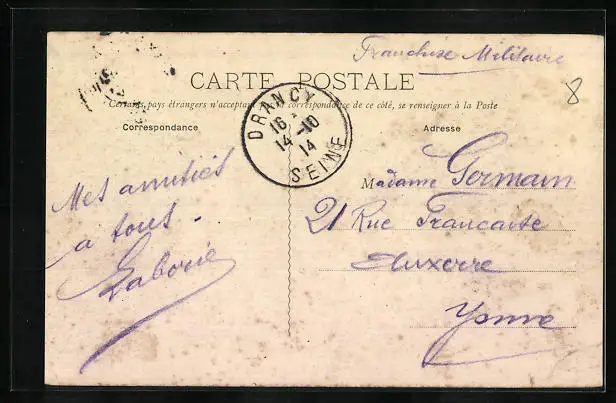 Franchise Militaire
8
CARTE POSTALE
Certains pays étrangers n'acceptant pas la correspondance de ce côté, se renseigner à la Poste
Correspondance
Adresse
DRANCY
16
14-10
14
SEINE
Mes amitiés
a tous.
Laborie
Madame Germain
21 Rue Francaise
Auxerre
Yonne